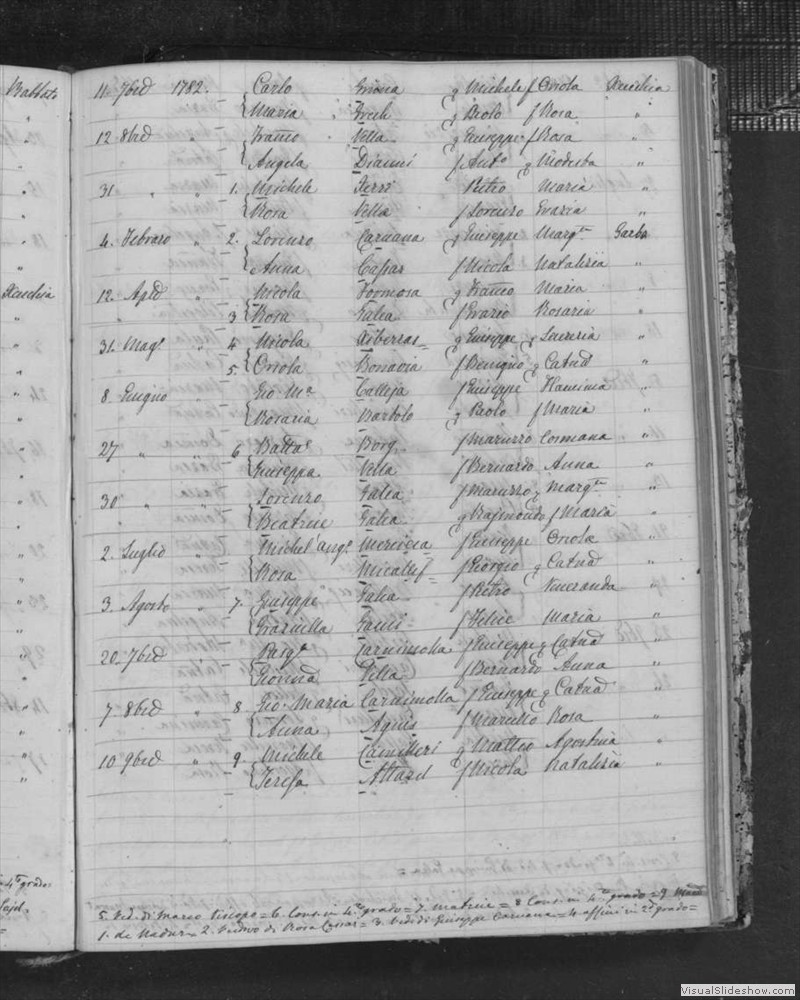 Babbat
11 7bre 1782. Carlo Grima q Michele f Oriola Xeuchia
" Maria Grech q Paolo f Rosa "
12 8bre Franco Vella q Giuseppe f Rosa "
Angela Dianni f Anto q Modesta "
31 " " 1. Michele Ferri Pietro Maria "
Rosa Vella f Lorenzo Evaria "
4. Febraro " 2. Lorenzo Caruana q Giuseppe Margta Garbo
Anna Cassar f Nicola Natalizia "
Xeuchia
12. Aple " Nicola Formosa q Franco Maria "
" 3 Rosa Galea f Evario Rosaria "
31. Mago " 4 Nicola Xiberras q Giuseppe
5. Oriola Bonavia f Benigno q Catna "
8 Giugno Gio Ma Calleja f Giuseppe Flaminia "
Rosaria Bartolo q Paolo f Maria "
27 " " 6 Battae Borg f Maruzzo Cosmana "
Giuseppa Vella f Bernardo Anna "
30 " " Lorenzo Galea f Maruzzo q Margta "
Beatrice Galea q Rajmondo f Maria "
2. Luglio " Michel'Anglo Mercieca f Giuseppe Oriola "
Rosa Micallef f Giorgio q Catna "
3. Agosto " 7. Giuseppe Galea f Pietro Veneranda "
Grazulla Gauci f Felice Maria "
20 7bre Pasqe f Giuseppe q Catna "
Vella f Bernardo Anna "
7. 8bre 8 Gio. Maria f Giuseppe q Catna "
Anna Agius f Marcello Rosa "
10 9bre " 9. Michele Camilleri q Matteo Agostina "
Teresa Attard f Nicola Natalizia "
4to grado
5. Ved. di Marco = 6. Cons. in 4to grado = 7. Matrice = 8 Cons. in 4to grado = 9
1. de Nadur = 2. Vedovo di Rosa Cassar = 3. Ved. di Giuseppe Caruana = 4. affini in 2do grado =
VisualSlideshow.com